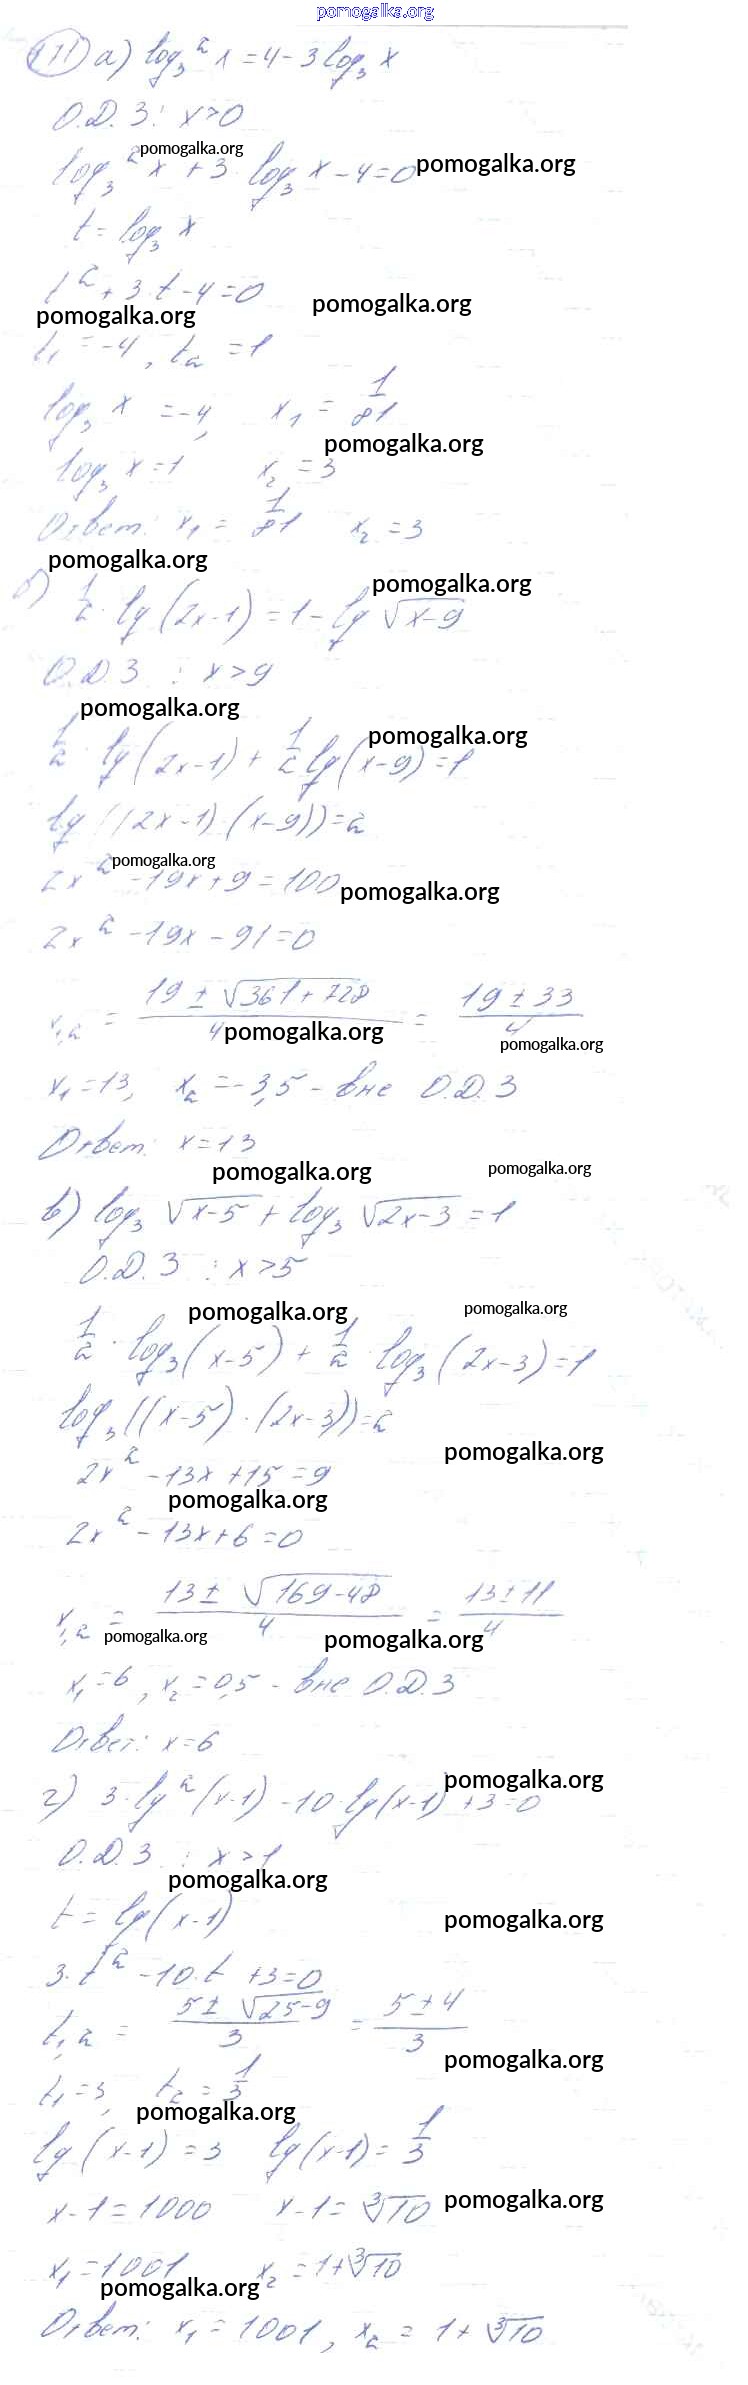 pomogalka.org
111 а) log₃² x = 4 - 3 log₃ x
О.Д.З: x > 0
pomogalka.org
log₃² x + 3 · log₃ x - 4 = 0 pomogalka.org
t = log₃ x
t² + 3·t - 4 = 0 pomogalka.org
pomogalka.org
t₁ = -4, t₂ = 1
log₃ x = -4, x₁ = 1/81
pomogalka.org
log₃ x = 1 x₂ = 3
Ответ: x₁ = 1/81 x₂ = 3
pomogalka.org
pomogalka.org
б) 1/2 · lg (2x-1) = 1 - lg √(x-9)
О.Д.З : x > 9
pomogalka.org
pomogalka.org
1/2 · lg (2x-1) + 1/2 lg (x-9) = 1
lg ((2x-1) · (x-9)) = 2
pomogalka.org
2x² - 19x + 9 = 100 pomogalka.org
2x² - 19x - 91 = 0
x₁,₂ = (19 ± √(361 + 728))/4 = (19 ± 33)/4
pomogalka.org
pomogalka.org
x₁ = 13, x₂ = -3,5 - вне О.Д.З
Ответ: x = 13
pomogalka.org pomogalka.org
в) log₃ √(x-5) + log₃ √(2x-3) = 1
О.Д.З : x > 5
pomogalka.org pomogalka.org
1/2 · log₃ (x-5) + 1/2 · log₃ (2x-3) = 1
log₃ ((x-5) · (2x-3)) = 2
pomogalka.org
2x² - 13x + 15 = 9
pomogalka.org
2x² - 13x + 6 = 0
x₁,₂ = (13 ± √(169-48))/4 = (13 ± 11)/4
pomogalka.org pomogalka.org
x₁ = 6, x₂ = 0,5 - вне О.Д.З
Ответ: x = 6
pomogalka.org
г) 3·lg² (x-1) - 10·lg (x-1) + 3 = 0
О.Д.З : x > 1
pomogalka.org
t = lg (x-1) pomogalka.org
3·t² - 10·t + 3 = 0
t₁,₂ = (5 ± √(25-9))/3 = (5 ± 4)/3
pomogalka.org
t₁ = 3, t₂ = 1/3
pomogalka.org
lg (x-1) = 3 lg (x-1) = 1/3
x-1 = 1000 x-1 = ∛10 pomogalka.org
x₁ = 1001 x₂ = 1+∛10
pomogalka.org
Ответ: x₁ = 1001, x₂ = 1+∛10